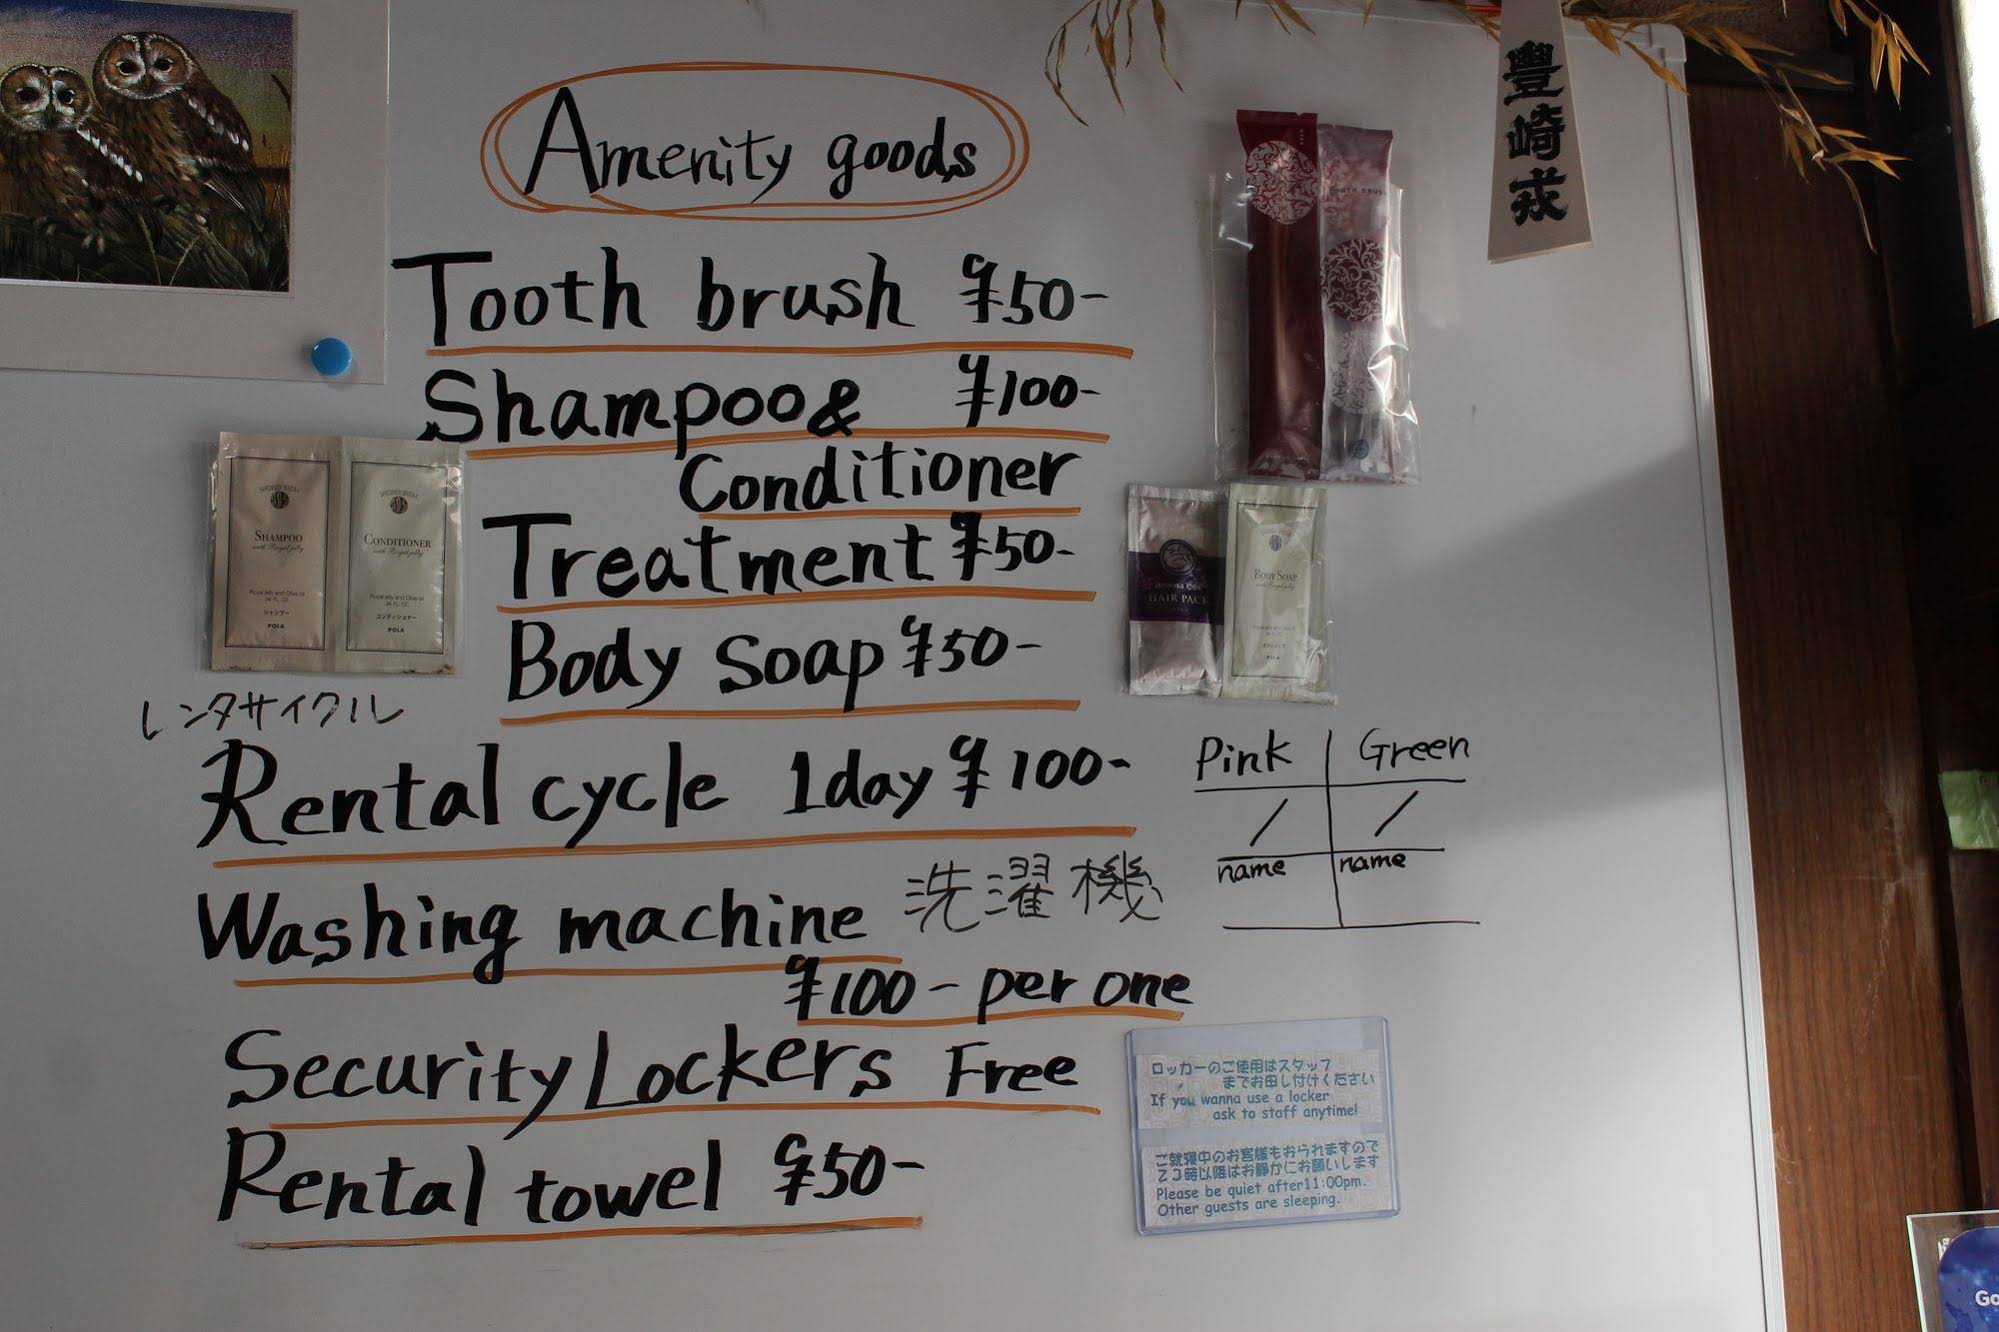 Amenity goods
豐崎戎
Tooth brush ¥50-
Shampoo& ¥100-
Conditioner
SHOWER BREAK
SHAMPOO
with Royal jelly
Royal jelly and Olive oil
シャンプー
POLA
SHOWER BREAK
CONDITIONER
with Royal jelly
Royal jelly and Olive oil
コンディショナー
POLA
Treatment ¥50-
HAIR PACK
BODY SOAP
with Royal jelly
POLA
Body soap ¥50-
レンタサイクル
Rental cycle 1day ¥100-
Pink Green
/ /
name name
Washing machine 洗濯機
¥100- per one
Security Lockers Free
ロッカーのご使用はスタッフ
までお申し付けください
If you wanna use a locker
ask to staff anytime!
ご就寝中のお客様もおられますので
23時以降はお静かにお願いします
Please be quiet after11:00pm.
Other guests are sleeping.
Rental towel ¥50-